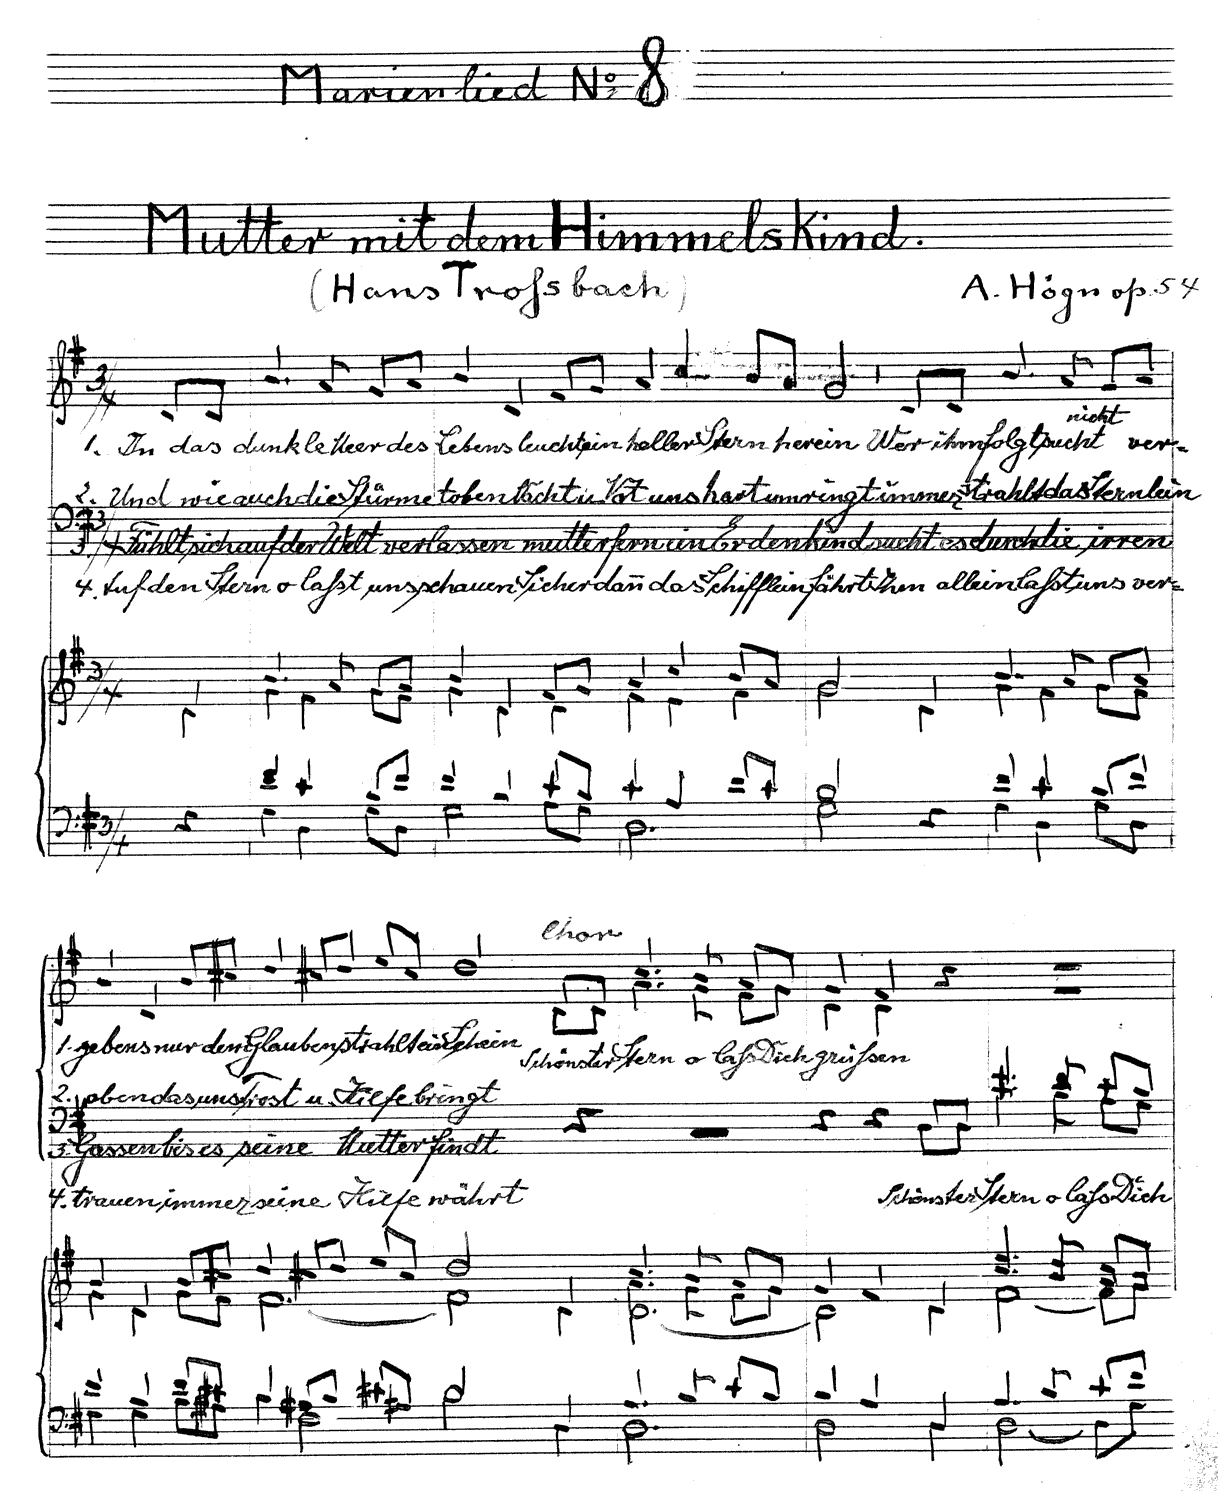 Marienlied No. 8
Mutter mit dem Himmelskind.
(Hans Trossbach) A. Högn op. 54
1. In das dunkle Meer des Lebens leuchtein heller Stern herein Wer ihm folgt sucht nicht ver-
2. Und wie auch die Stürme toben Nacht u. Not uns hart umringt immer strahlt das Sternlein
3. Fühlt sich auf der Welt verlassen mutterfern ein Erdenkind sucht es durch die irren
4. Auf den Stern o lasst uns schauen Sicher dann das Schifflein fährt Ihm allein lasst uns ver-
Chor
1. gebens nur den Glauben strahlt ein Schein
Schönster Stern o lass Dich grüssen
2. oben das uns Trost u. Hilfe bringt
3. Gassen bis es seine Mutter findt
4. trauen immer seine Hilfe währt
Schönster Stern o lass Dich